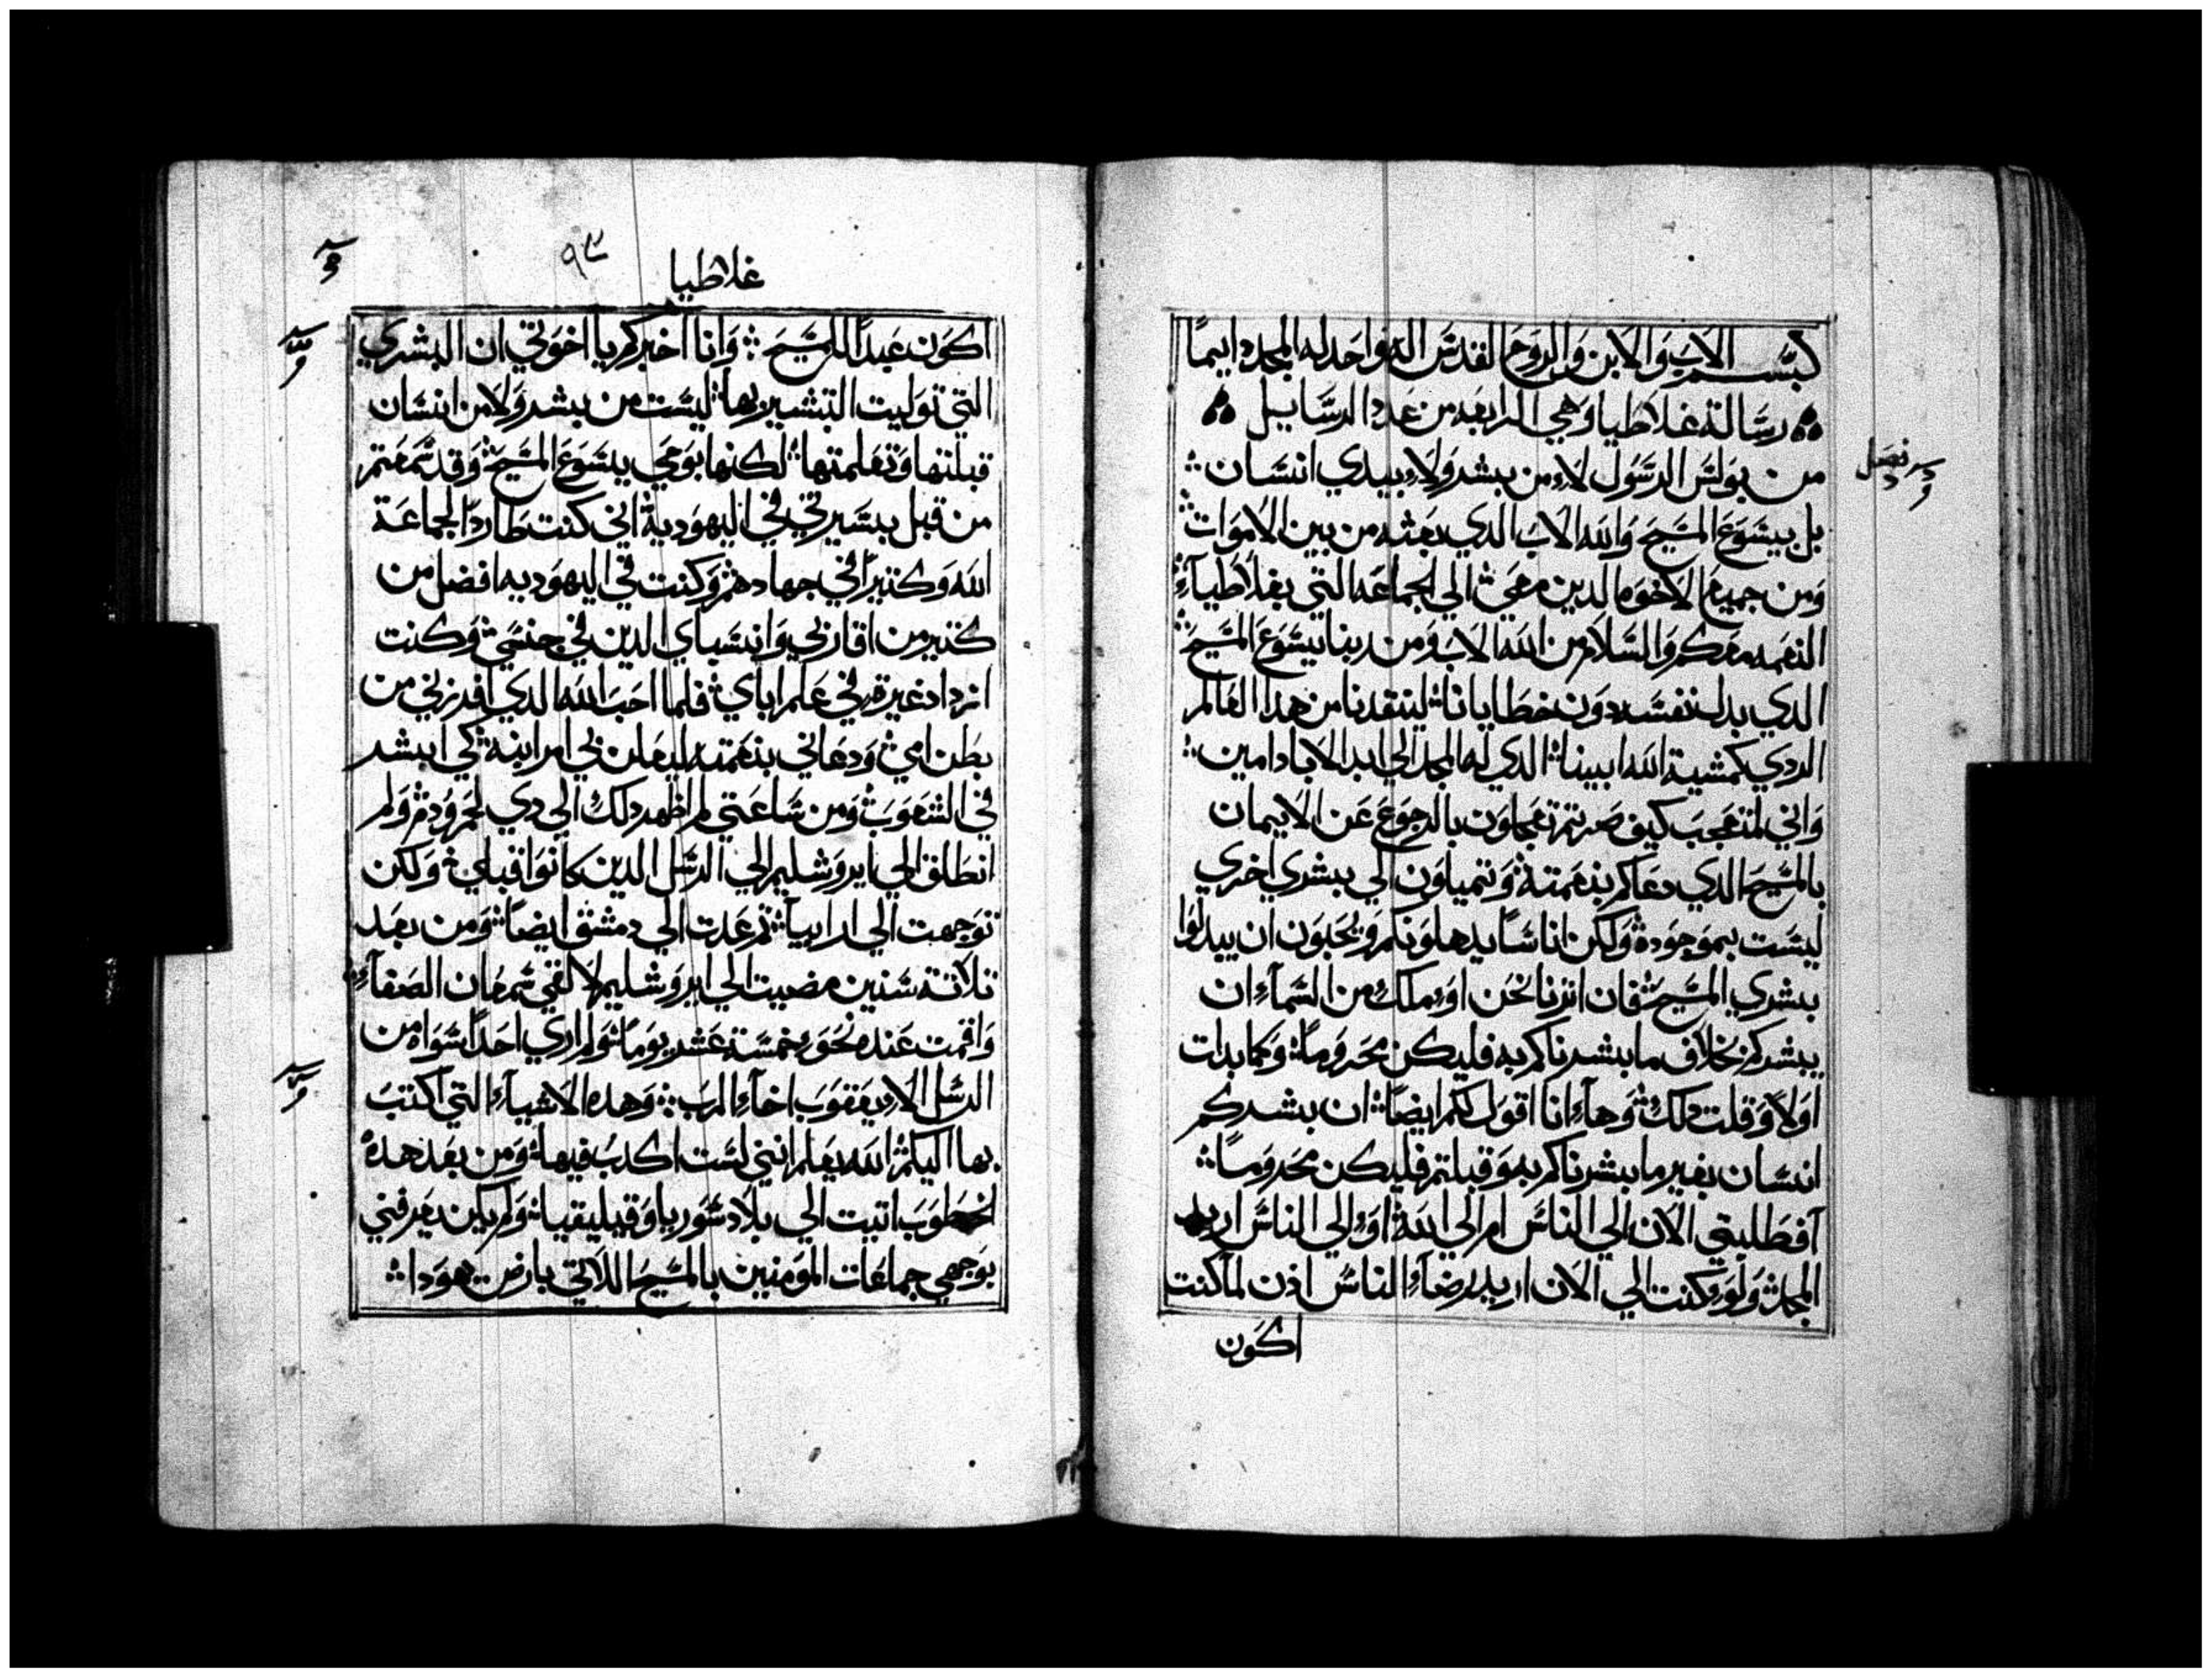 بسم الاب والابن والروح القدس اله واحد له المجد دايماً
رسالة غلاطيا وهي الرابعه من عدد الرسايل
من بولس الرسول لا من بشر ولا بيدي انسان
بل بيسوع المسيح والله الاب الدي بعثه من بين الاموات
ومن جميع الاخوه الدين معي الي الجماعه التي بغلاطياء
النعمه معكم والسلام من الله الاب ومن ربنا يسوع المسيح
الدي بدل نفسه دون خطايانا لينقدنا من هدا العالم
الردي كمشية الله ابينا الدي له المجد الي ابد الاباد امين
واني لمتعجب كيف صرتم تعجلون بالرجوع عن الايمان
بالمسيح الدي دعاكم بنعمته وتميلون الي بشري اخري
ليست بموجوده ولكن اناساً يدهلونكم ويحبون ان يبدلوا
بشري المسيح فان انزنا نحن او ملك من السماء ان
يبشركم بخلاف ما بشرناكم به فليكن محروماً وكما بدات
اولاً وقلت دلك وهاء انا اقول لكم ايضاً ان بشركم
انسان بغير ما بشرناكم به وقبلتم فليكن محروماً
آفطلبتي الان الي الناس ام الي الله او الي الناس اريد
المجد ولو كنت الي الان اريد رضاء الناس اذن لما كنت
اكون
فصل
غلاطيا
٩٣
اكون عبداً للمسيح وانا اخبركم يا اخوتي ان البشري
التي توليت التبشير بها ليست من بشر ولا من انسان
قبلتها وتعلمتها لكنها بوحي يسوع المسيح وقد سمعتم
من قبل بسيرتي في اليهودية اني كنت طارداً لجماعة
الله وكتيراً في جهادهم وكنت في اليهوديه افضل من
كتير من اقاربي وانسباي الدين في جنسي وكنت
ازداد غيرة في علم اباي فلما احب الله الدي افرزني من
بطن امي ودعاني بنعمته ليعلن بي امر ابنه كي ابشر
في الشعوب ومن ساعتي لم اظهر دلك الي دي لحم ودم ولم
انطلق الي ايروشليم الي الرسل الدين كانوا قبلي ولكن
توجهت الي ارابيا ثم عدت الي دمشق ايضاً ومن بعد
تلاتة سنين مضيت الي ايروشليم لالقي سمعان الصفاء
واقمت عنده نحو خمسة عشر يوماً ولم اري احداً سواه من
الرسل الا يعقوب اخاء الرب وهده الاشياء التي اكتب
بها اليكم الله يعلم انني لست اكدب فيها ومن بعد هده
الخطوب اتيت الي بلاد سوريا وقيليقيا ولم يكن يعرفني
بوجهي جماعات المومنين بالمسيح اللاتي بارض يهودا